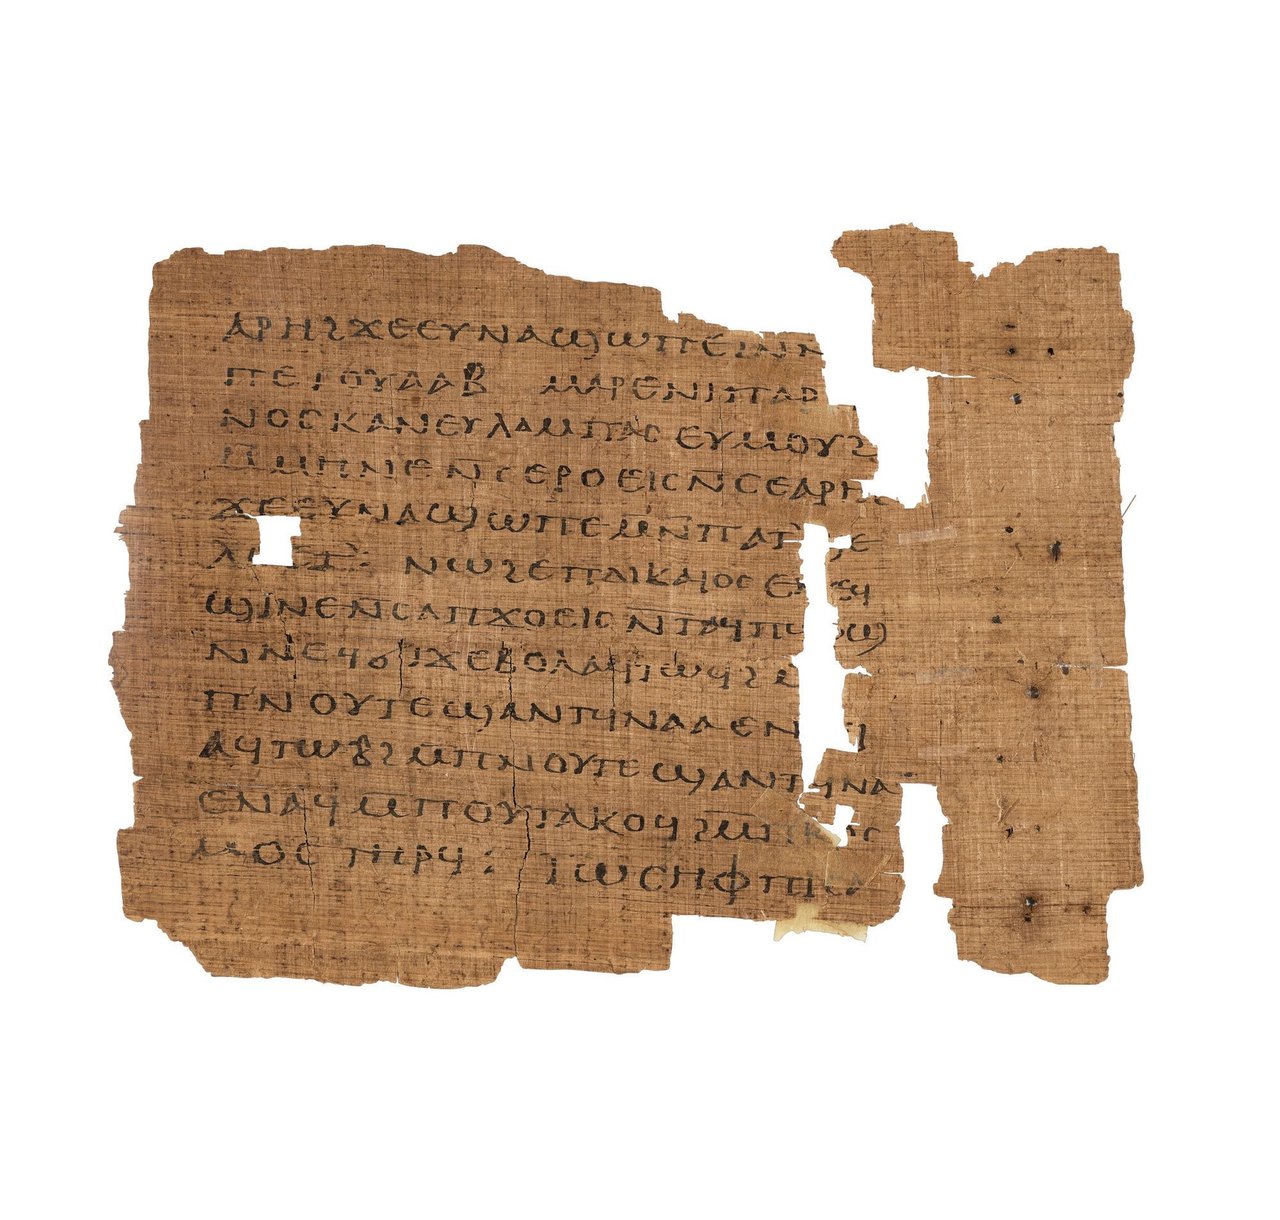 ⲁⲣⲏϩϫⲉⲉⲩⲛⲁϣⲱⲡⲉ
ⲡⲉⲧⲟⲩⲁⲁⲃ ⲙⲁⲣⲉⲛⲓⲡⲁⲣ
ⲛⲟⲥⲕⲁⲛⲉⲩⲗⲁⲙⲡⲁⲥ ⲉⲩⲙⲟⲩϩ
ⲙ̄ⲙⲏⲛⲉ ⲛ̄ⲥⲉⲣⲟⲉⲓⲥ ⲛ̄ⲥⲉⲁⲣⲏ
ϫⲉⲉⲩⲛⲁϣⲱⲡⲉ ⲙⲛ̄ⲡⲁⲧ
ⲛⲱϩⲉ ⲡⲇⲓⲕⲁⲓⲟⲥ
ϣⲓⲛⲉ ⲛ̄ⲥⲁⲡϫⲟⲉⲓⲥ ⲛ̄ⲧⲁϥⲡ
ⲛ̄ⲛⲉϥϭⲓϫ ⲉⲃⲟⲗ ⲁϥⲧⲱϥϩ
ⲡⲛⲟⲩⲧⲉ ϣⲁⲛⲧϥⲛⲁⲁ ⲉⲛ
ⲁϥⲧⲱⲃϩ ⲙ̄ⲡⲛⲟⲩⲧⲉ ϣⲁⲛⲧϥⲛⲁ
ⲉⲛⲁϥ ⲙ̄ⲡⲟⲩⲧⲁⲕⲟϥ ϩⲙ̄ⲡⲕⲟⲥ
ⲙⲟⲥ ⲧⲏⲣϥ : ⲓⲱⲥⲏⲫ ⲡ